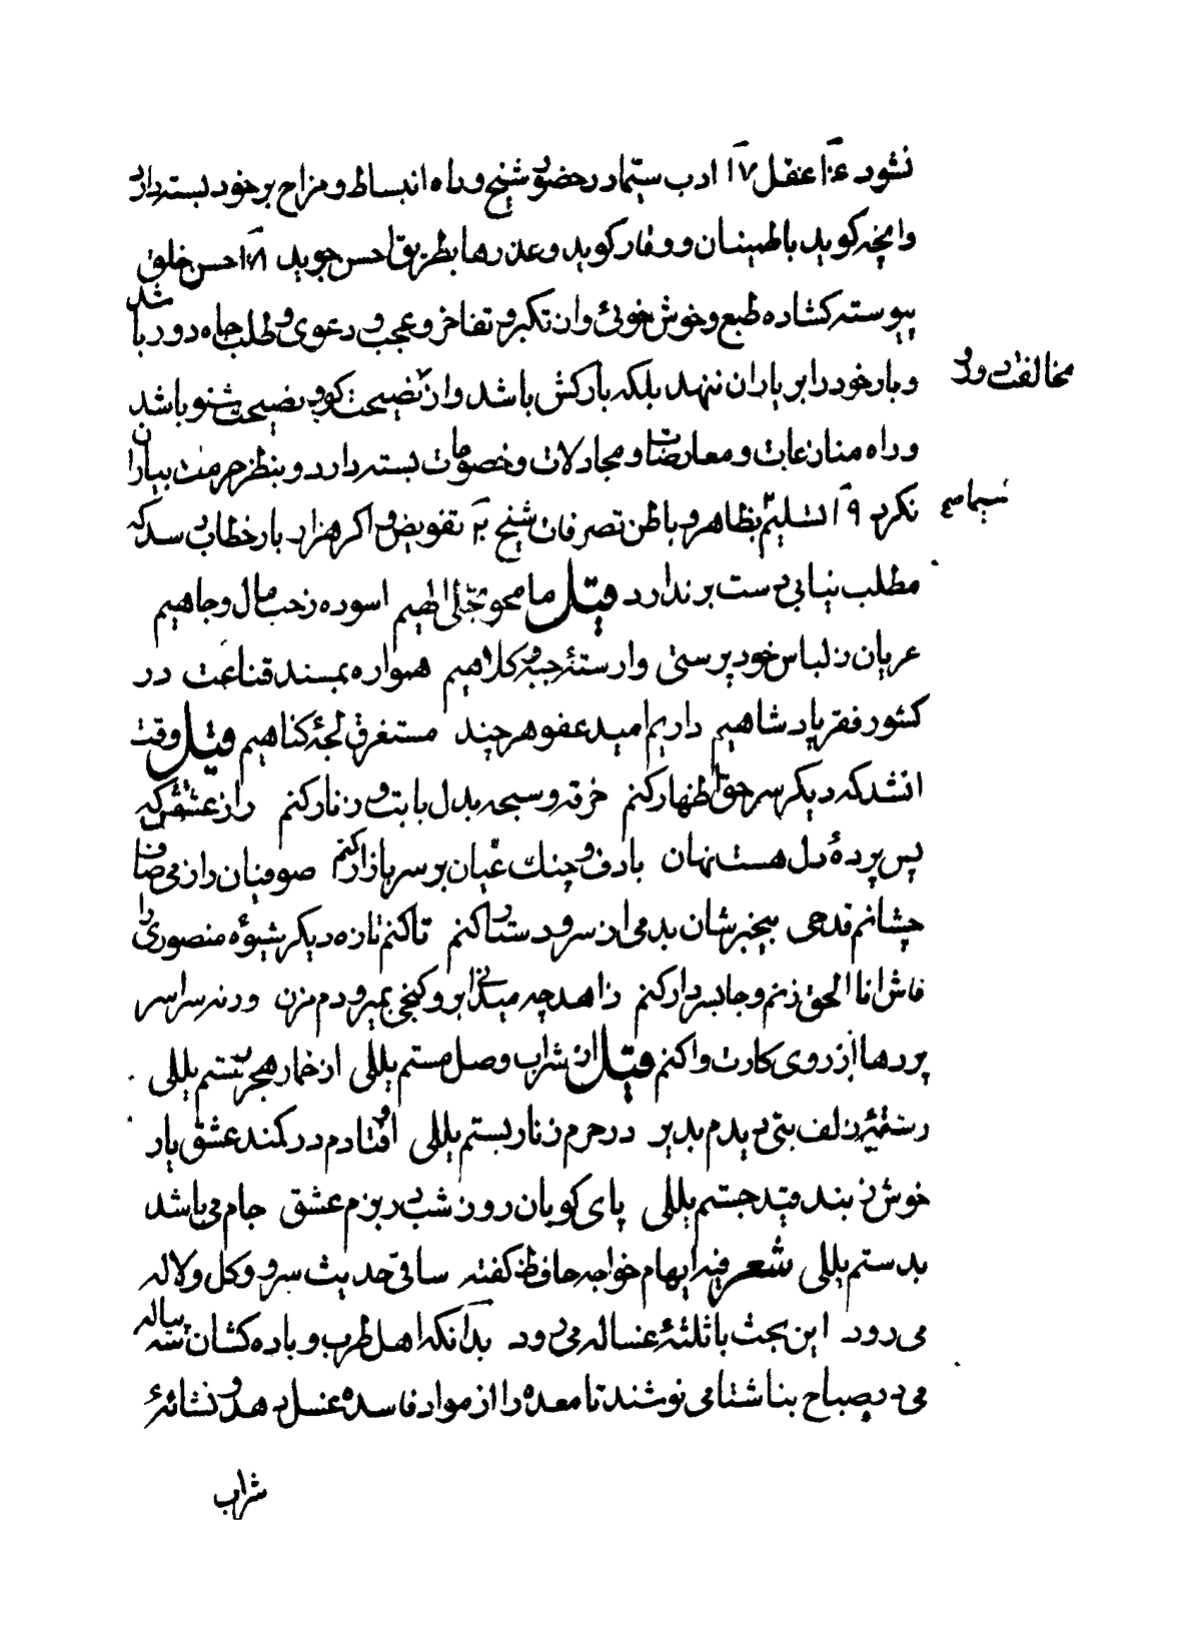 نشود ۱۶ عقل ۱۷ ادب سیما در حضور شیخ و راه انبساط و مزاح بر خود بسته دارد
وانچه کوید باطمینان و وقار کوید و عذرها بطریق احسن جوید ۱۸ حسن خلق
پیوسته کشاده طبع و خوش خوئی و از تکبر و تفاخر و عجب و دعوی و طلب جاه دور باشد
و بار خود را بر یاران ننهد بلکه بارکش باشد و از نصیحت کو و نصیحت شنو باشد
مخالفت دور
و راه منازعات و معارضات و مجادلات و خصومات بسته دارد و بنظر حرمت بیاران
نکرد ۱۹ تسلیم بظاهر و باطن تصرفات شیخ ۲۰ تفویض و اکر هزار بار خطاب رسد که
مطلب نیابی دست برندارد قیل ما محو تجلی الهیم اسوده ز حب مال و جاهیم
عریان ز لباس خود پرستی وارستهٔ جبه و کلاهیم همواره بمسند قناعت در
کشور فقر پادشاهیم داریم امید عفو هر چند مستغرق لجهٔ کناهیم قیل وقت
انشد که دیکر سر حق اظهار کنم خرقه و سبحه بدل با بت و زنار کنم راز عشقش که
پس پردهٔ دل هست نهان با دف و چنك عیان بر سر بازار کنم صوفیان را ز می صاف
چشانم قدحی بیخبرشان بدمی از سر و دستار کنم تا کنم تازه دیکر شیوهٔ منصوری را
فاش انا الحق زنم و جا بسر دار کنم زاهد چه میدانی برو کنجی بمیر و دم مزن ورنه سراسر
پردها از روی کارت وا کنم قیل از شراب وصل مستم یللی از خمار هجر رستم یللی
رشتهٔ زلف بتی دیدم بدیر در حرم زنار بستم یللی اوفتادم در کمند عشق یار
خوش ز بند قید جستم یللی پای کوبان روز شب در بزم عشق جام می باشد
بدستم یللی شعر فیه ایهام خواجه حافظ کفته ساقی حدیث سرو و کل و لاله
می رود این بحث با ثلثهٔ غساله می رود بدانکه اهل طرب و باده کشان سه پیاله
می در صباح بناشتا می نوشند تا معده را از مواد فاسده غسل دهد و نشائهٔ
شراب